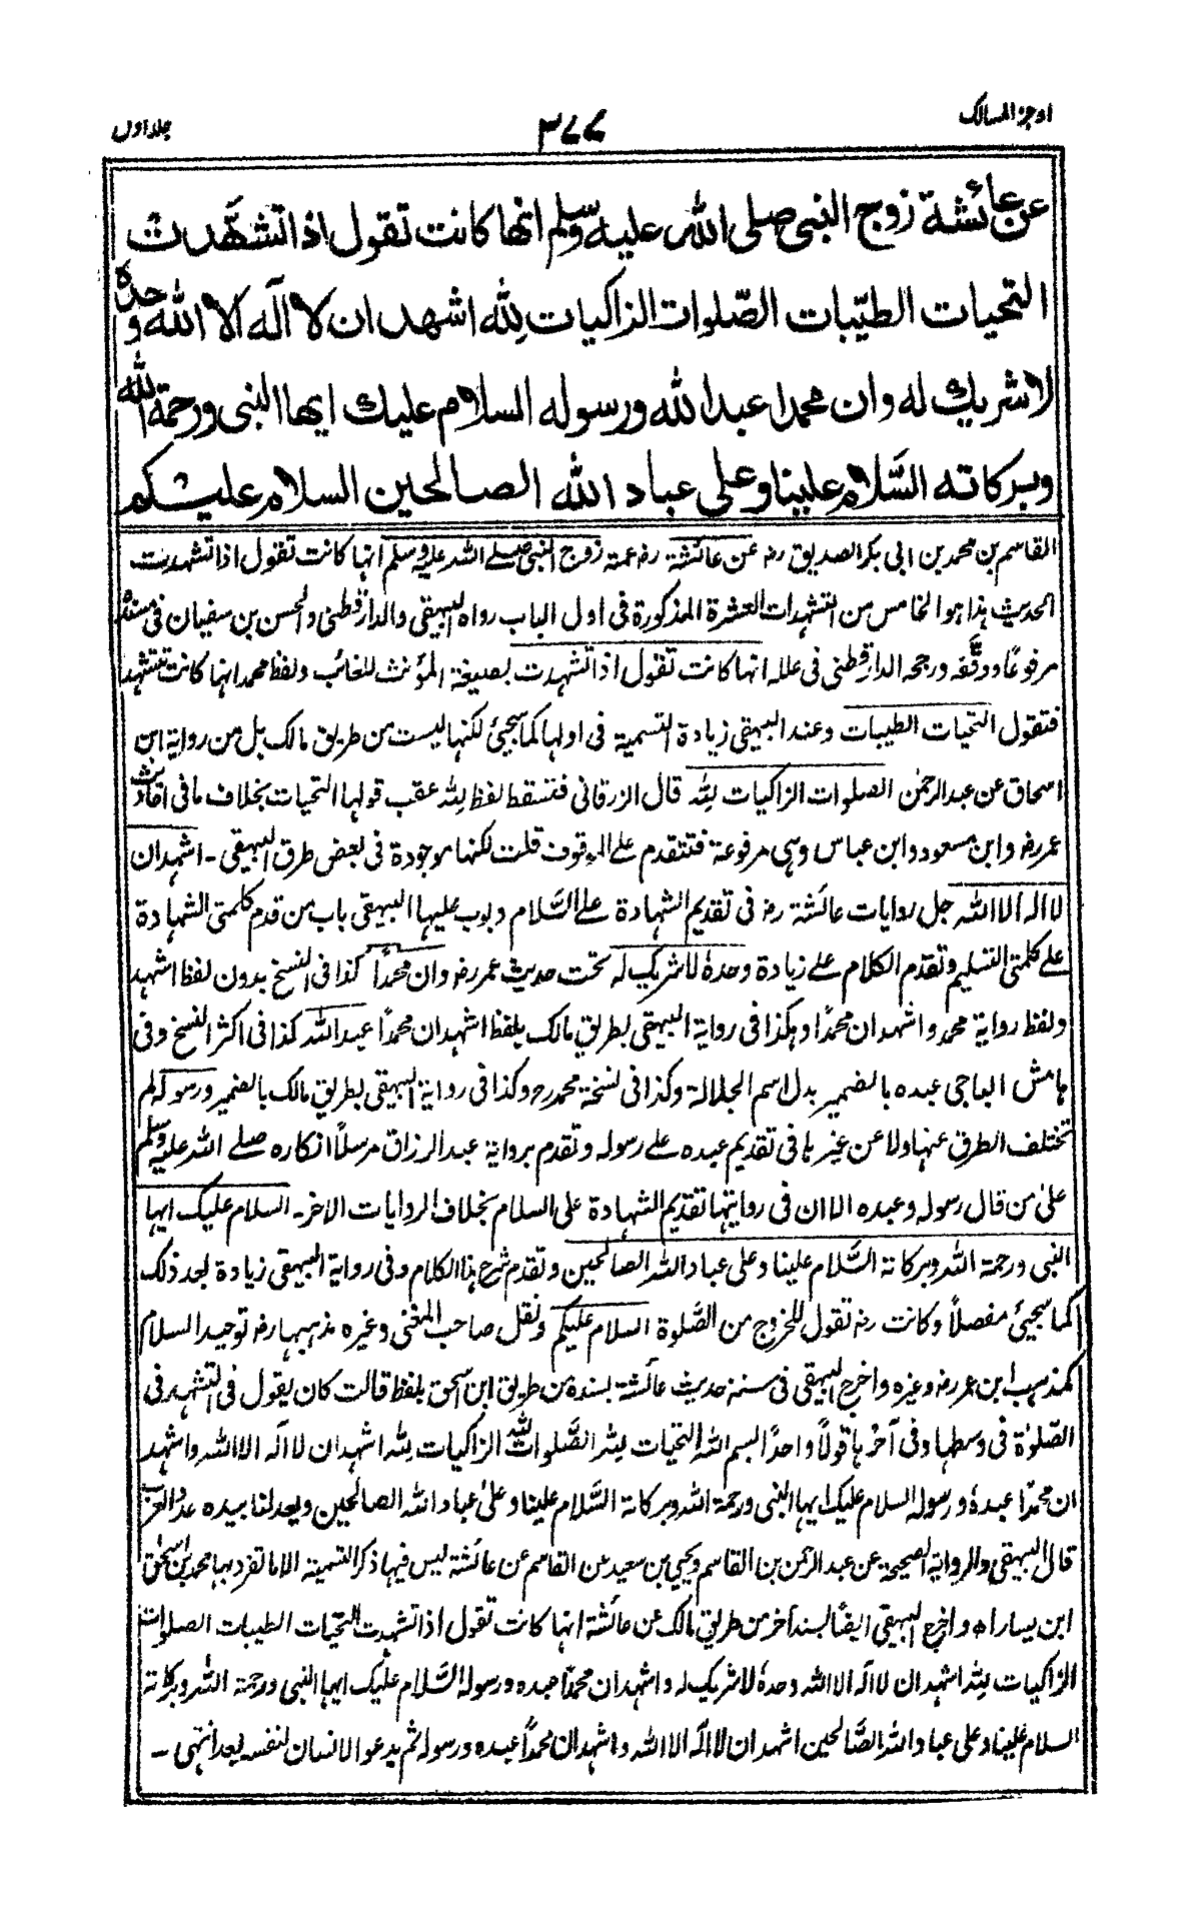 اوجز المسالک
۳۷۷
جلد اول
عن عائشة زوج النبی صلی الله علیه وسلم انها کانت تقول اذا تشهّدت
التحیات الطیّبات الصّلوات الزاکیات لِلّٰه اشهد ان لا آله الا الله وحدهٗ
لا شریك له وان محمدا عبد الله ورسوله السلام علیك ایها النبی ورحمة الله
وبرکاته السَّلام علینا وعلی عباد الله الصالحین السلام علیکم
القاسم بن محمد بن ابی بکر الصدیق رض عن عائشة رض عمة زوج النبی صلے الله علیه وسلم انها کانت تقول اذا تشهدت
الحدیث هذا هو الخامس من التشهدات العشرة المذکورة فی اول الباب رواه البیهقی والدارقطنی والحسن بن سفیان فی مسنده
مرفوعًا ووقَّفه ورجحه الدارقطنی فی علله انها کانت تقول اذا تشهدت بصیغة المؤنث للغائب ولفظ محمد انها کانت تتشهد
فتقول التحیات الطیبات وعند البیهقی زیادة التسمیة فی اولها کما سیجیٔ لکنها لیست من طریق مالک بل من روایة ابن
اسحاق عن عبد الرحمٰن الصلوات الزاکیات لِلّٰه قال الزرقانی فتسقط لفظ لِلّٰه عقب قولها التحیات بخلاف ما فی احادیث
عمر رض وابن مسعود وابن عباس وهی مرفوعة فتتقدم علے الموقوف قلت لکنها موجودة فی بعض طرق البیهقی ۔ اشهد ان
لا اله الا الله جل روایات عائشة رض فی تقدیم الشهادة علے السَّلام وبوب علیها البیهقی باب من قدم کلمتی الشهادة
علے کلمتی التسلیم وتقدم الکلام علے زیادة وحدهٗ لا شریک له تحت حدیث عمر رض وان محمدًا کذا فی النسخ بدون لفظ اشهد
ولفظ روایة محمد واشهد ان محمدًا وهکذا فی روایة البیهقی بطریق مالک بلفظ اشهد ان محمدًا عبد الله کذا فی اکثر النسخ وفی
هامش الباجی عبده بالضمیر بدل اسم الجلالة وکذا فی نسخة محمد رح وکذا فی روایة البیهقی بطریق مالک بالضمیر ورسوله لم
تختلف الطرق عنها ولا عن غیرها فی تقدیم عبده علے رسوله وتقدم بروایة عبد الرزاق مرسلًا انکاره صلے الله علیه وسلم
علیٰ من قال رسوله وعبده الا ان فی روایتها تقدیم الشهادة علی السلام بخلاف الروایات الاخر ۔ السلام علیک ایها
النبی ورحمة الله وبرکاته السَّلام علینا وعلی عباد الله الصالحین وتقدم شرح هذا الکلام وفی روایة البیهقی زیادة بعد ذلک
کما سیجیٔ مفصلًا وکانت رض تقول للخروج من الصَّلوة السلام علیکم ونقل صاحب المغنی وغیره مذهبها رض توحید السلام
کمذهب ابن عمر رض وغیره واخرج البیهقی فی سننه حدیث عائشة بسنده من طریق ابن اسحق بلفظ قالت کان یقول فی التشهد فی
الصَّلوٰة فی وسطها وفی آخرها قولًا واحدًا بسم الله التحیات لِلّٰه الصَّلوات لِلّٰه الزاکیات لِلّٰه اشهد ان لا اله الا الله واشهد
ان محمدًا عبدهٗ ورسوله السلام علیک ایها النبی ورحمة الله وبرکاته السَّلام علینا وعلیٰ عباد الله الصالحین ویعد لنا بیده عدد العرب
قال البیهقی والروایة الصحیحة عن عبد الرحمٰن بن القاسم ویحیی بن سعید عن القاسم عن عائشة لیس فیها ذکر التسمیة الا ما تفرد بها محمد بن اسحٰق
ابن یسار اه واخرج البیهقی ایضًا بسند آخر من طریق مالک عن عائشة انها کانت تقول اذا تشهدت التحیات الطیبات الصلوات
الزاکیات لِلّٰه اشهد ان لا اله الا الله وحدهٗ لا شریک له واشهد ان محمدًا عبده ورسوله السَّلام علیک ایها النبی ورحمة الله وبرکاته
السلام علینا وعلی عباد الله الصَّالحین اشهد ان لا اله الا الله واشهد ان محمدًا عبده ورسوله ثم یدعو الانسان لنفسه بعد انتهی ۔